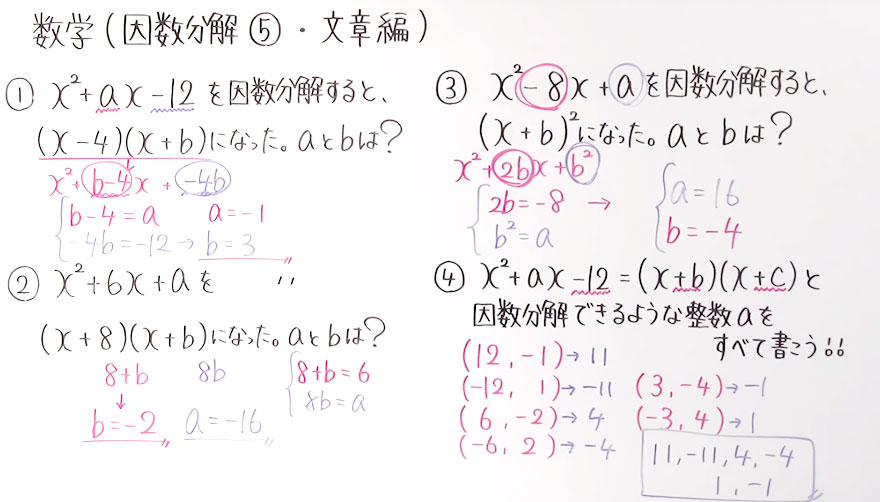 数学(因数分解⑤・文章編)
① x²+ax-12を因数分解すると、
(x-4)(x+b)になった。aとbは?
x²+(b-4)x+(-4b)
b-4=a a=-1
-4b=-12→b=3
② x²+6x+aを 〃
(x+8)(x+b)になった。aとbは?
8+b 8b 8+b=6
↓ 8b=a
b=-2 a=-16
③ x²-8x+aを因数分解すると、
(x+b)²になった。aとbは?
x²+2bx+b²
2b=-8 → a=16
b²=a b=-4
④ x²+ax-12=(x+b)(x+c)と
因数分解できるような整数aを
すべて書こう!!
(12,-1)→11
(-12, 1)→-11 (3,-4)→-1
(6,-2)→4 (-3,4)→1
(-6, 2)→-4 11,-11,4,-4
1,-1